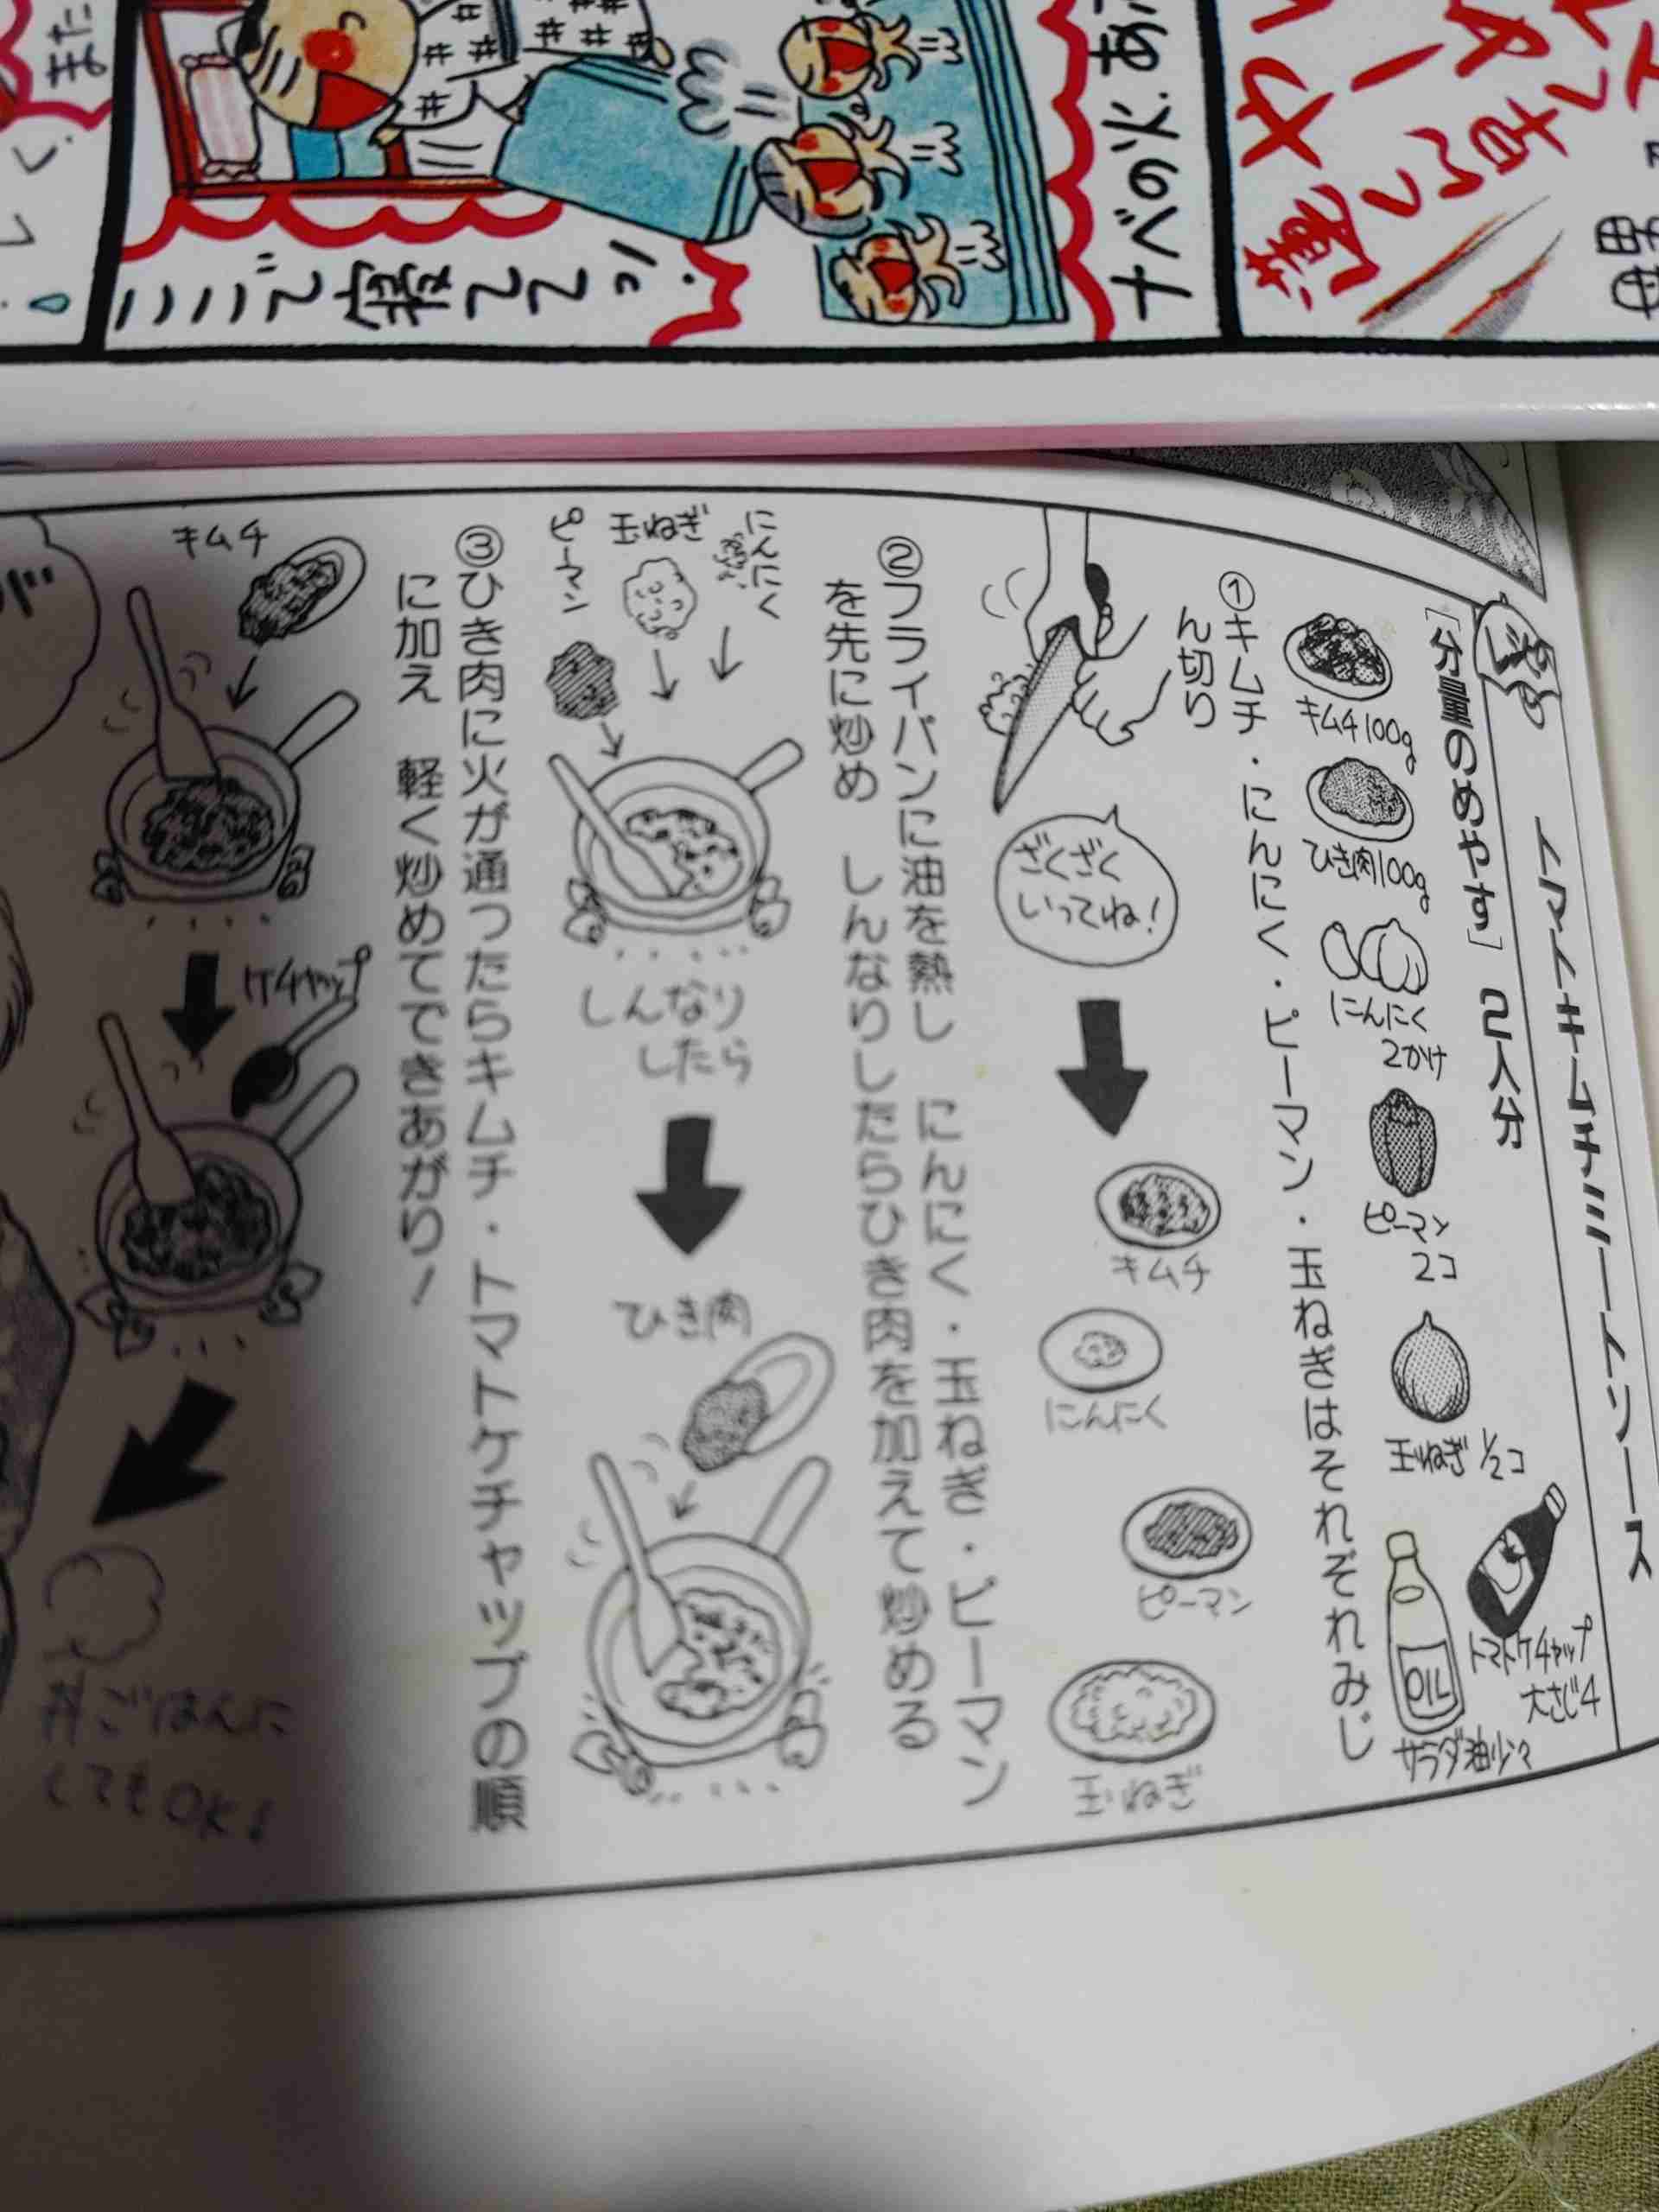 トマトキムチミートソース
[分量のめやす] 2人分
キムチ100g
ひき肉100g
にんにく
2かけ
ピーマン
2コ
玉ねぎ 1/2コ
トマトケチャップ
大さじ4
OIL
サラダ油少々
①キムチ・にんにく・ピーマン・玉ねぎはそれぞれみじ
ん切り
ざくざく
いってね!
キムチ
にんにく
ピーマン
玉ねぎ
②フライパンに油を熱し にんにく・玉ねぎ・ピーマン
を先に炒め しんなりしたらひき肉を加えて炒める
にんにく
玉ねぎ
ピーマン
しんなり
したら
ひき肉
③ひき肉に火が通ったらキムチ・トマトケチャップの順
に加え 軽く炒めてできあがり!
キムチ
ケチャップ
丼ごはんに
してもOK!
ナベの火、
ここで寝てて
また